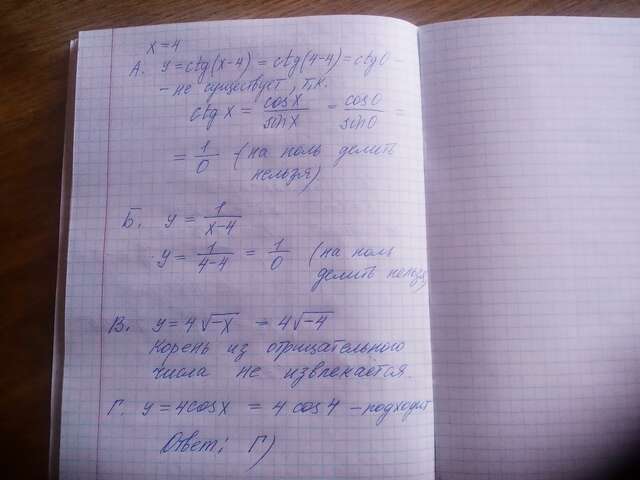 x=4
А. y=ctg(x-4)=ctg(4-4)=ctg0-
- не существует, т.к.
ctg x = cosx/sinx = cos0/sin0 =
= 1/0 (на ноль делить
нельзя)
Б. y = 1/x-4
y = 1/4-4 = 1/0 (на ноль
делить нельзя
В. y=4√-x = 4√-4
Корень из отрицательного
числа не извлекается.
Г. y=4cosx = 4cos4 - подходит
Ответ: Г)